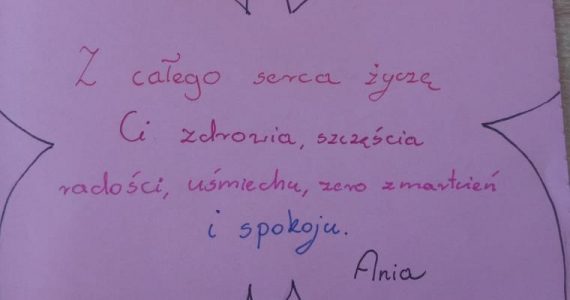 Z całego serca życzę
Ci zdrowia, szczęścia
radości, uśmiechu, zero zmartwień
i spokoju.
Ania